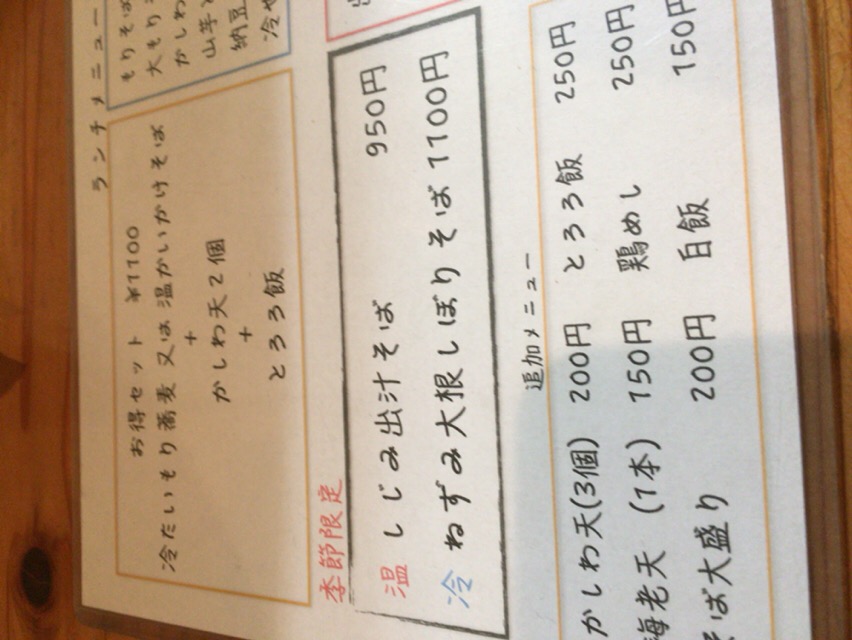 ランチメニュー
もりそば
大もり
かしわ
山芋
納豆
冷や
お得セット ¥1100
冷たいもり蕎麦 又は 温かいかけそば
+
かしわ天2個
+
とろろ飯
季節限定
温 しじみ出汁そば 950円
冷 ねずみ大根しぼりそば 1100円
追加メニュー
かしわ天(3個) 200円 とろろ飯 250円
海老天 (1本) 150円 鶏めし 250円
そば大盛り 200円 白飯 150円